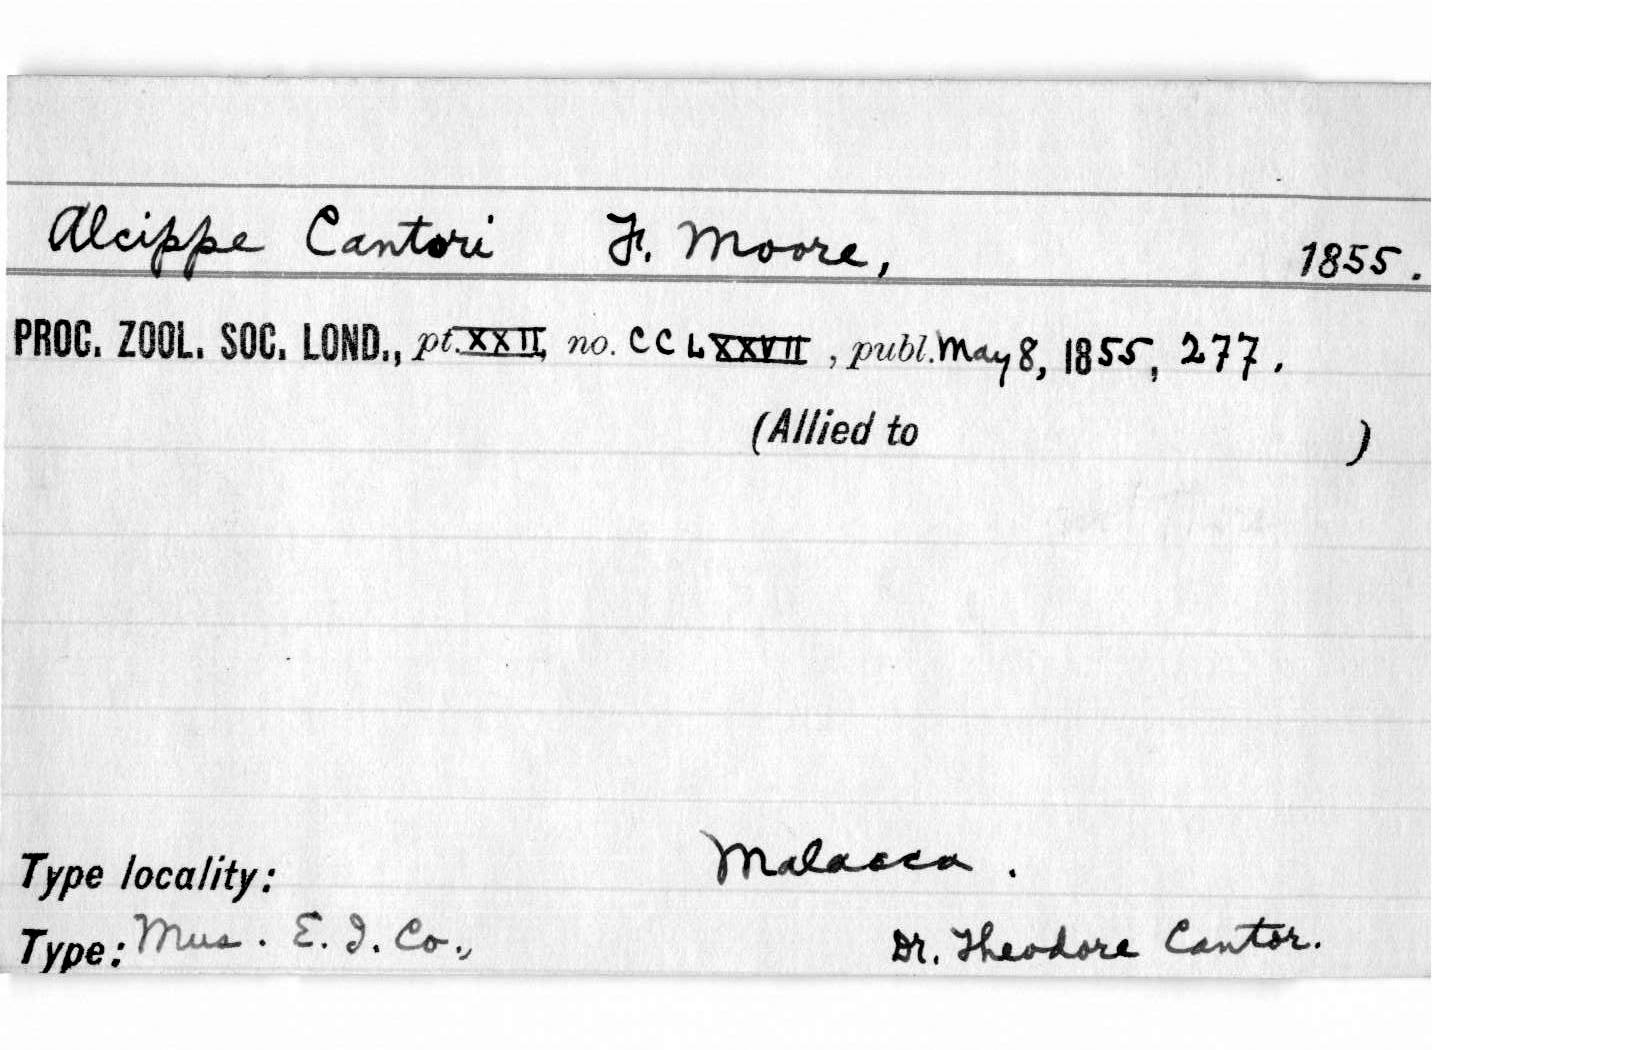 Alcippe Cantori F. Moore, 1855.
PROC. ZOOL. SOC. LOND., pt. XXII, no. CCLXXVII, publ. May 8, 1855, 277.
(Allied to )
Type locality: Malacca.
Type: Mus. E. I. Co., Dr. Theodore Cantor.